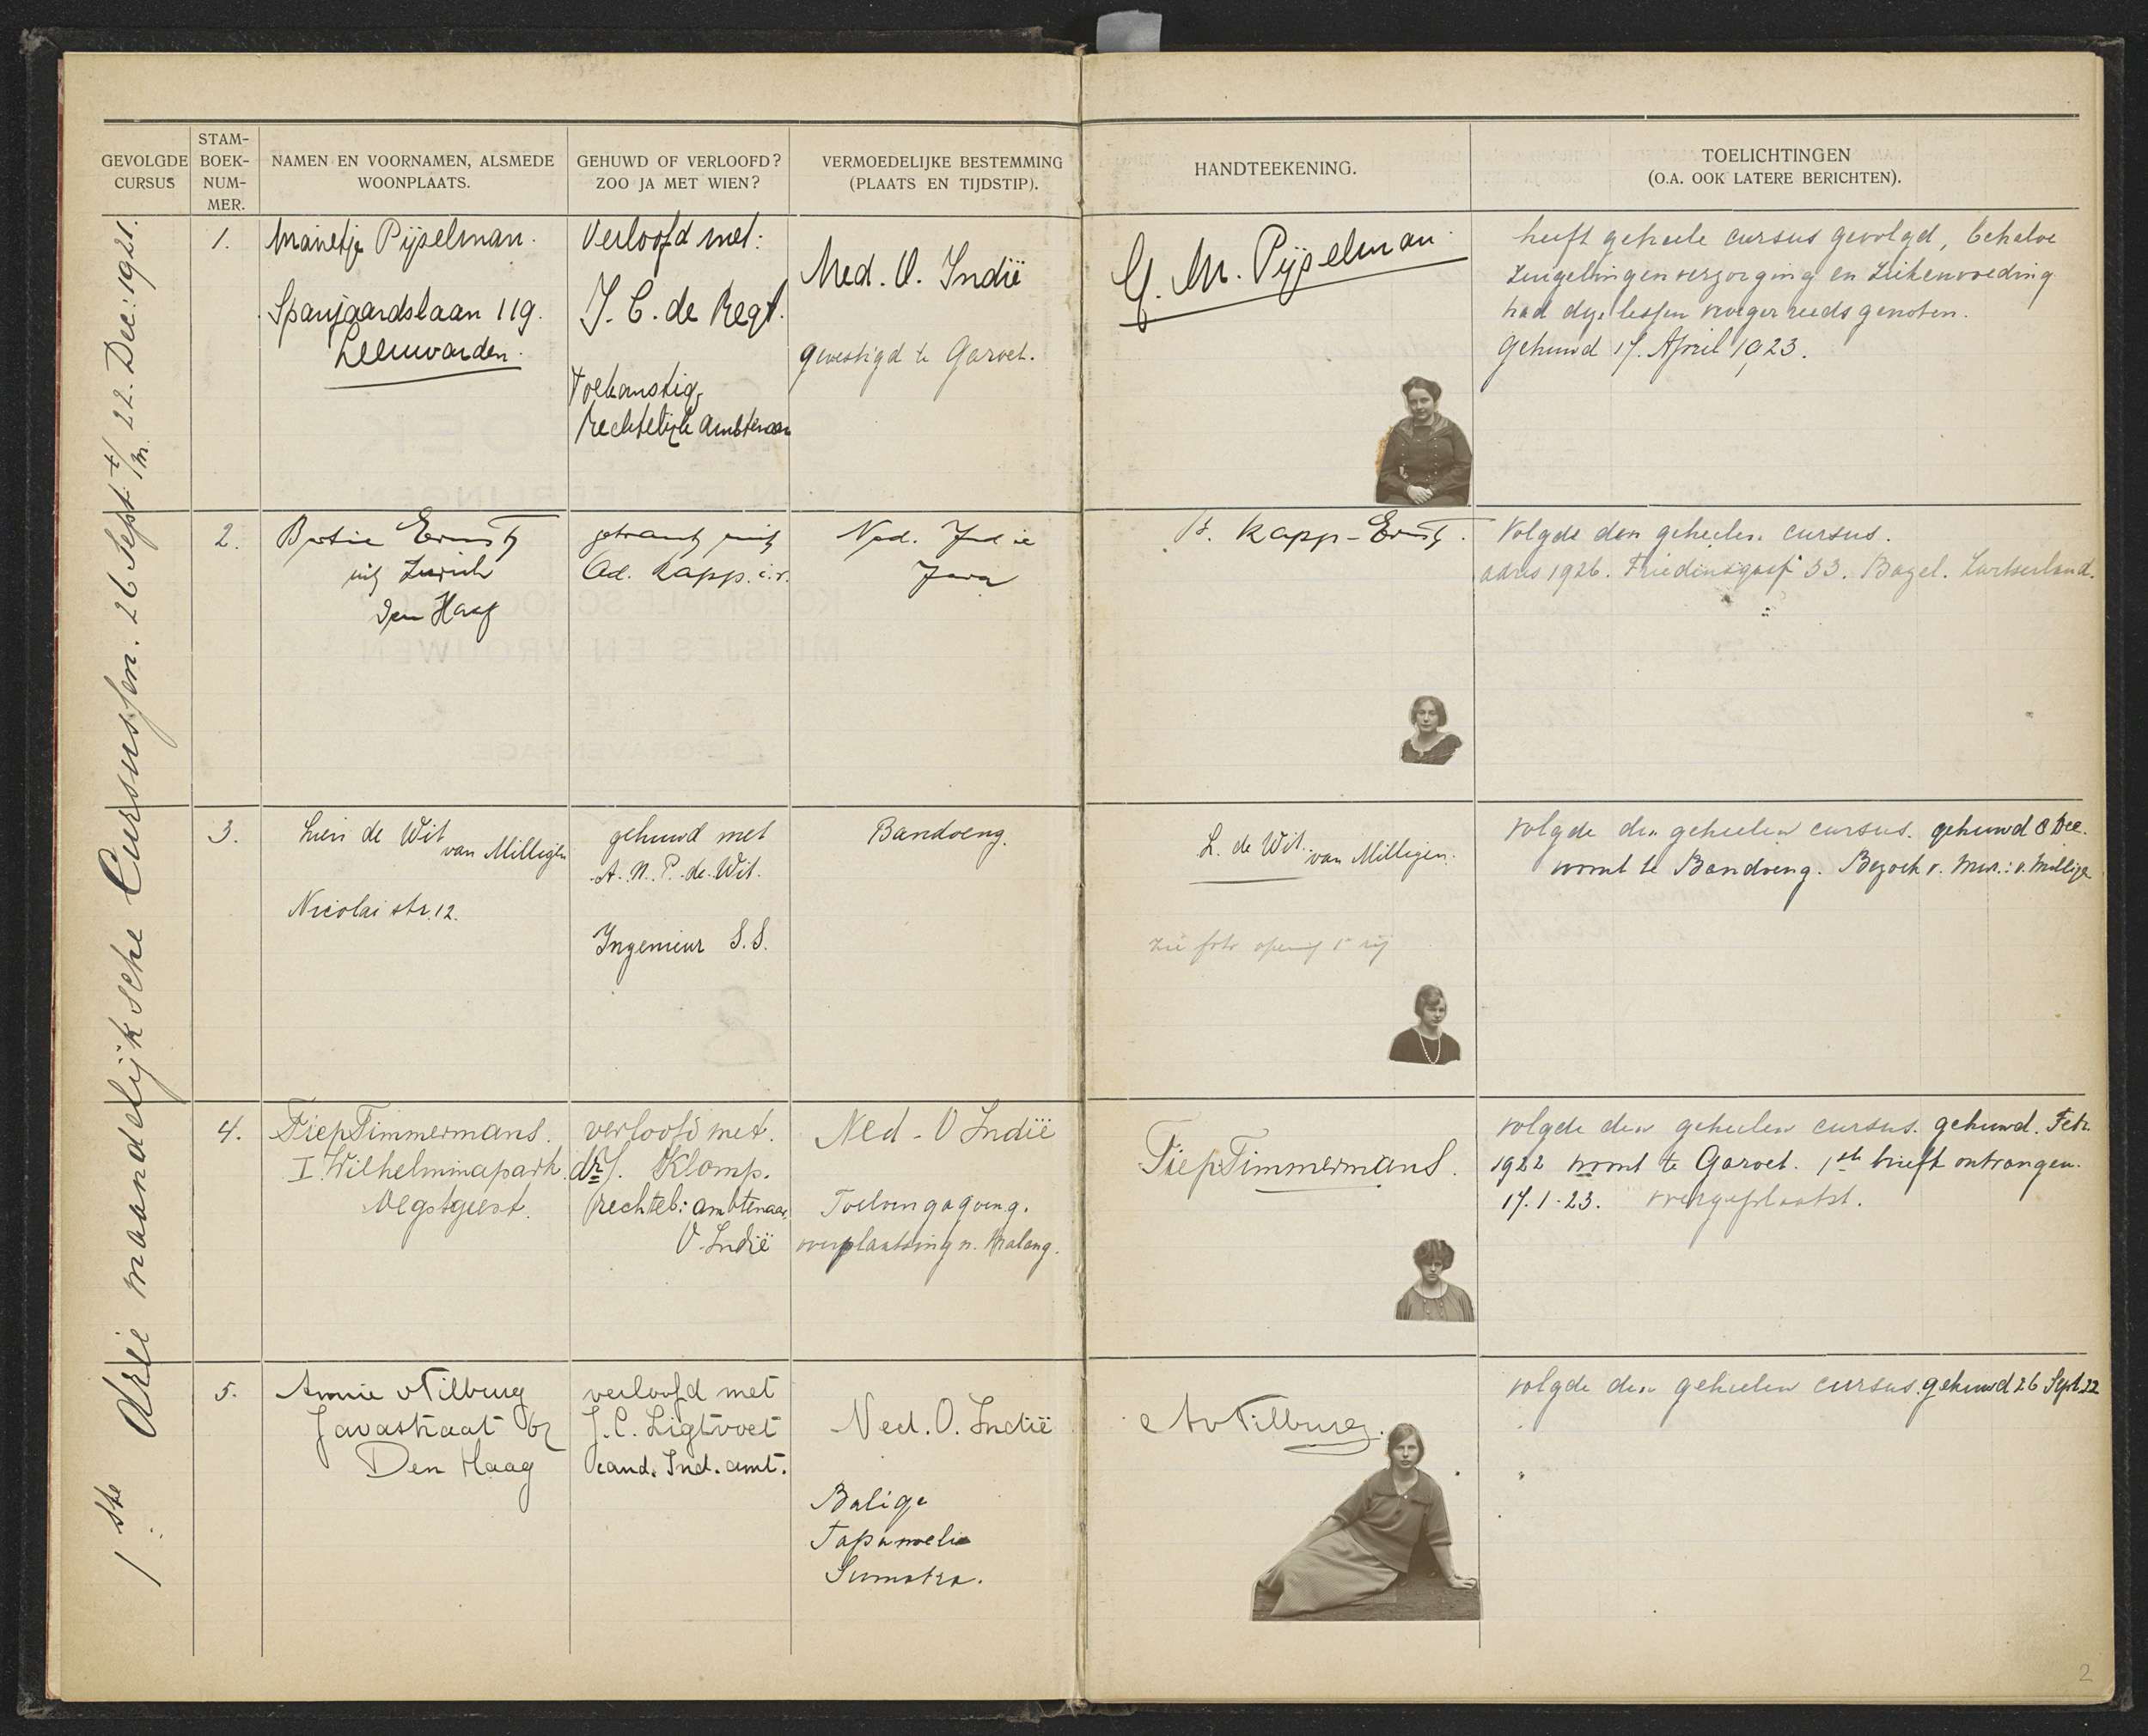 GEVOLGDE CURSUS
STAM-BOEK-NUM-MER.
NAMEN EN VOORNAMEN, ALSMEDE WOONPLAATS.
GEHUWD OF VERLOOFD? ZOO JA MET WIEN?
VERMOEDELIJKE BESTEMMING (PLAATS EN TIJDSTIP).
HANDTEEKENING.
TOELICHTINGEN (O.A. OOK LATERE BERICHTEN).
1ste drie maandelijksche Cursussen. 26 Sept t/m 22 Dec: 1921.
1.
Marietje Pijselman.
Spanjaardslaan 119.
Leeuwarden.
Verloofd met:
J. C. de Regt.
Toekomstig
rechtelijk ambtenaar
Ned. O. Indië
gevestigd te Garoet.
M. Pijselman
heeft geheele cursus gevolgd, behalve
zuigelingenverzorging en ziekenvoeding
had deze lessen vroeger reeds genoten.
Gehuwd 17. April 1923.
2.
Ernst
Zürich
Den Haag
getraut mit
Ad. Kapp
Ned. Indie
Java
B. Kapp-Ernst.
Volgde den geheelen cursus.
adres 1926. 33. Bazel. Zwitserland.
3.
Lien de Wit
van Milligen
Nicolai str. 12.
gehuwd met
A. N. P. de Wit.
Ingenieur S.S.
Bandoeng.
L. de Wit.
van Milligen.
zie foto
volgde den geheelen cursus. gehuwd 8 Dec.
woont te Bandoeng. Bezoek v. Mevr.: v. Milligen
4.
Fiep Timmermans.
I Wilhelminapark.
Oegstgeest.
verloofd met.
dr J. Klomp.
rechtel: ambtenaar
O-Indië
Ned-O Indië
Toeloengagoeng.
overplaatsing n. Malang.
Fiep Timmermans.
volgde den geheelen cursus. gehuwd. Febr.
1922 woont te Garoet. 1ste brief ontvangen.
17.1.23. overgeplaatst.
5.
Annie v Tilburg
Javastraat
Den Haag
verloofd met
J. C. Ligtvoet
cand. Ind. amt.
Ned. O. Indië
Balige
Tapanoelie
Sumatra.
A v Tilburg.
volgde den geheelen cursus. gehuwd 26 Sept. 22
2